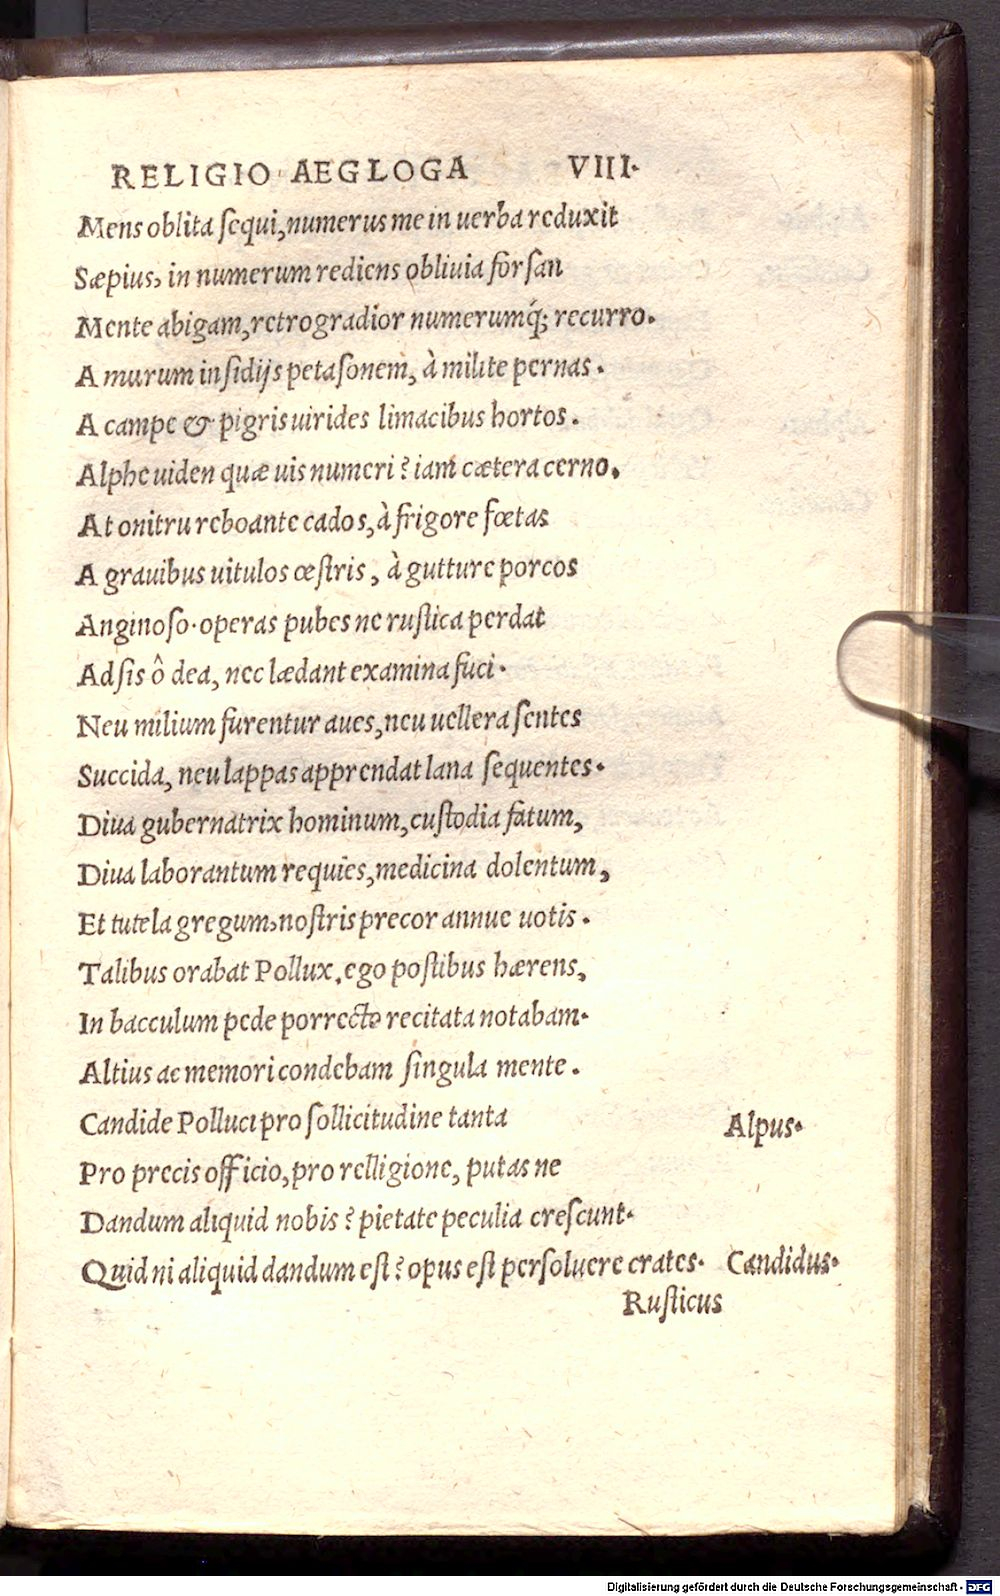 RELIGIO AEGLOGA VIII.
Mens oblita ſequi, numerus me in uerba reduxit
Sæpius, in numerum rediens obliuia forſan
Mente abigam, retrogradior numerumq́; recurro.
A murum inſidijs petaſonem, à milite pernas.
A campe & pigris uirides limacibus hortos.
Alphe uiden quæ uis numeri? iam cætera cerno.
At onitru reboante cados, à frigore fœtas
A grauibus uitulos œſtris, à gutture porcos
Anginoſo. operas pubes ne ruſtica perdat
Adſis ô dea, nec lædant examina fuci.
Neu milium furentur aues, neu uellera ſentes
Succida, neu lappas apprendat lana ſequentes.
Diua gubernatrix hominum, cuſtodia fatum,
Diua laborantum requies, medicina dolentum,
Et tutela gregum, noſtris precor annue uotis.
Talibus orabat Pollux, ego poſtibus hærens,
In bacculum pede porrecto recitata notabam.
Altius ac memori condebam ſingula mente.
Candide Polluci pro ſollicitudine tanta Alpus.
Pro precis officio, pro relligione, putas ne
Dandum aliquid nobis? pietate peculia creſcunt.
Quid ni aliquid dandum eſt? opus eſt perſoluere crates. Candidus.
Ruſticus
Digitalisierung gefördert durch die Deutsche Forschungsgemeinschaft - DFG